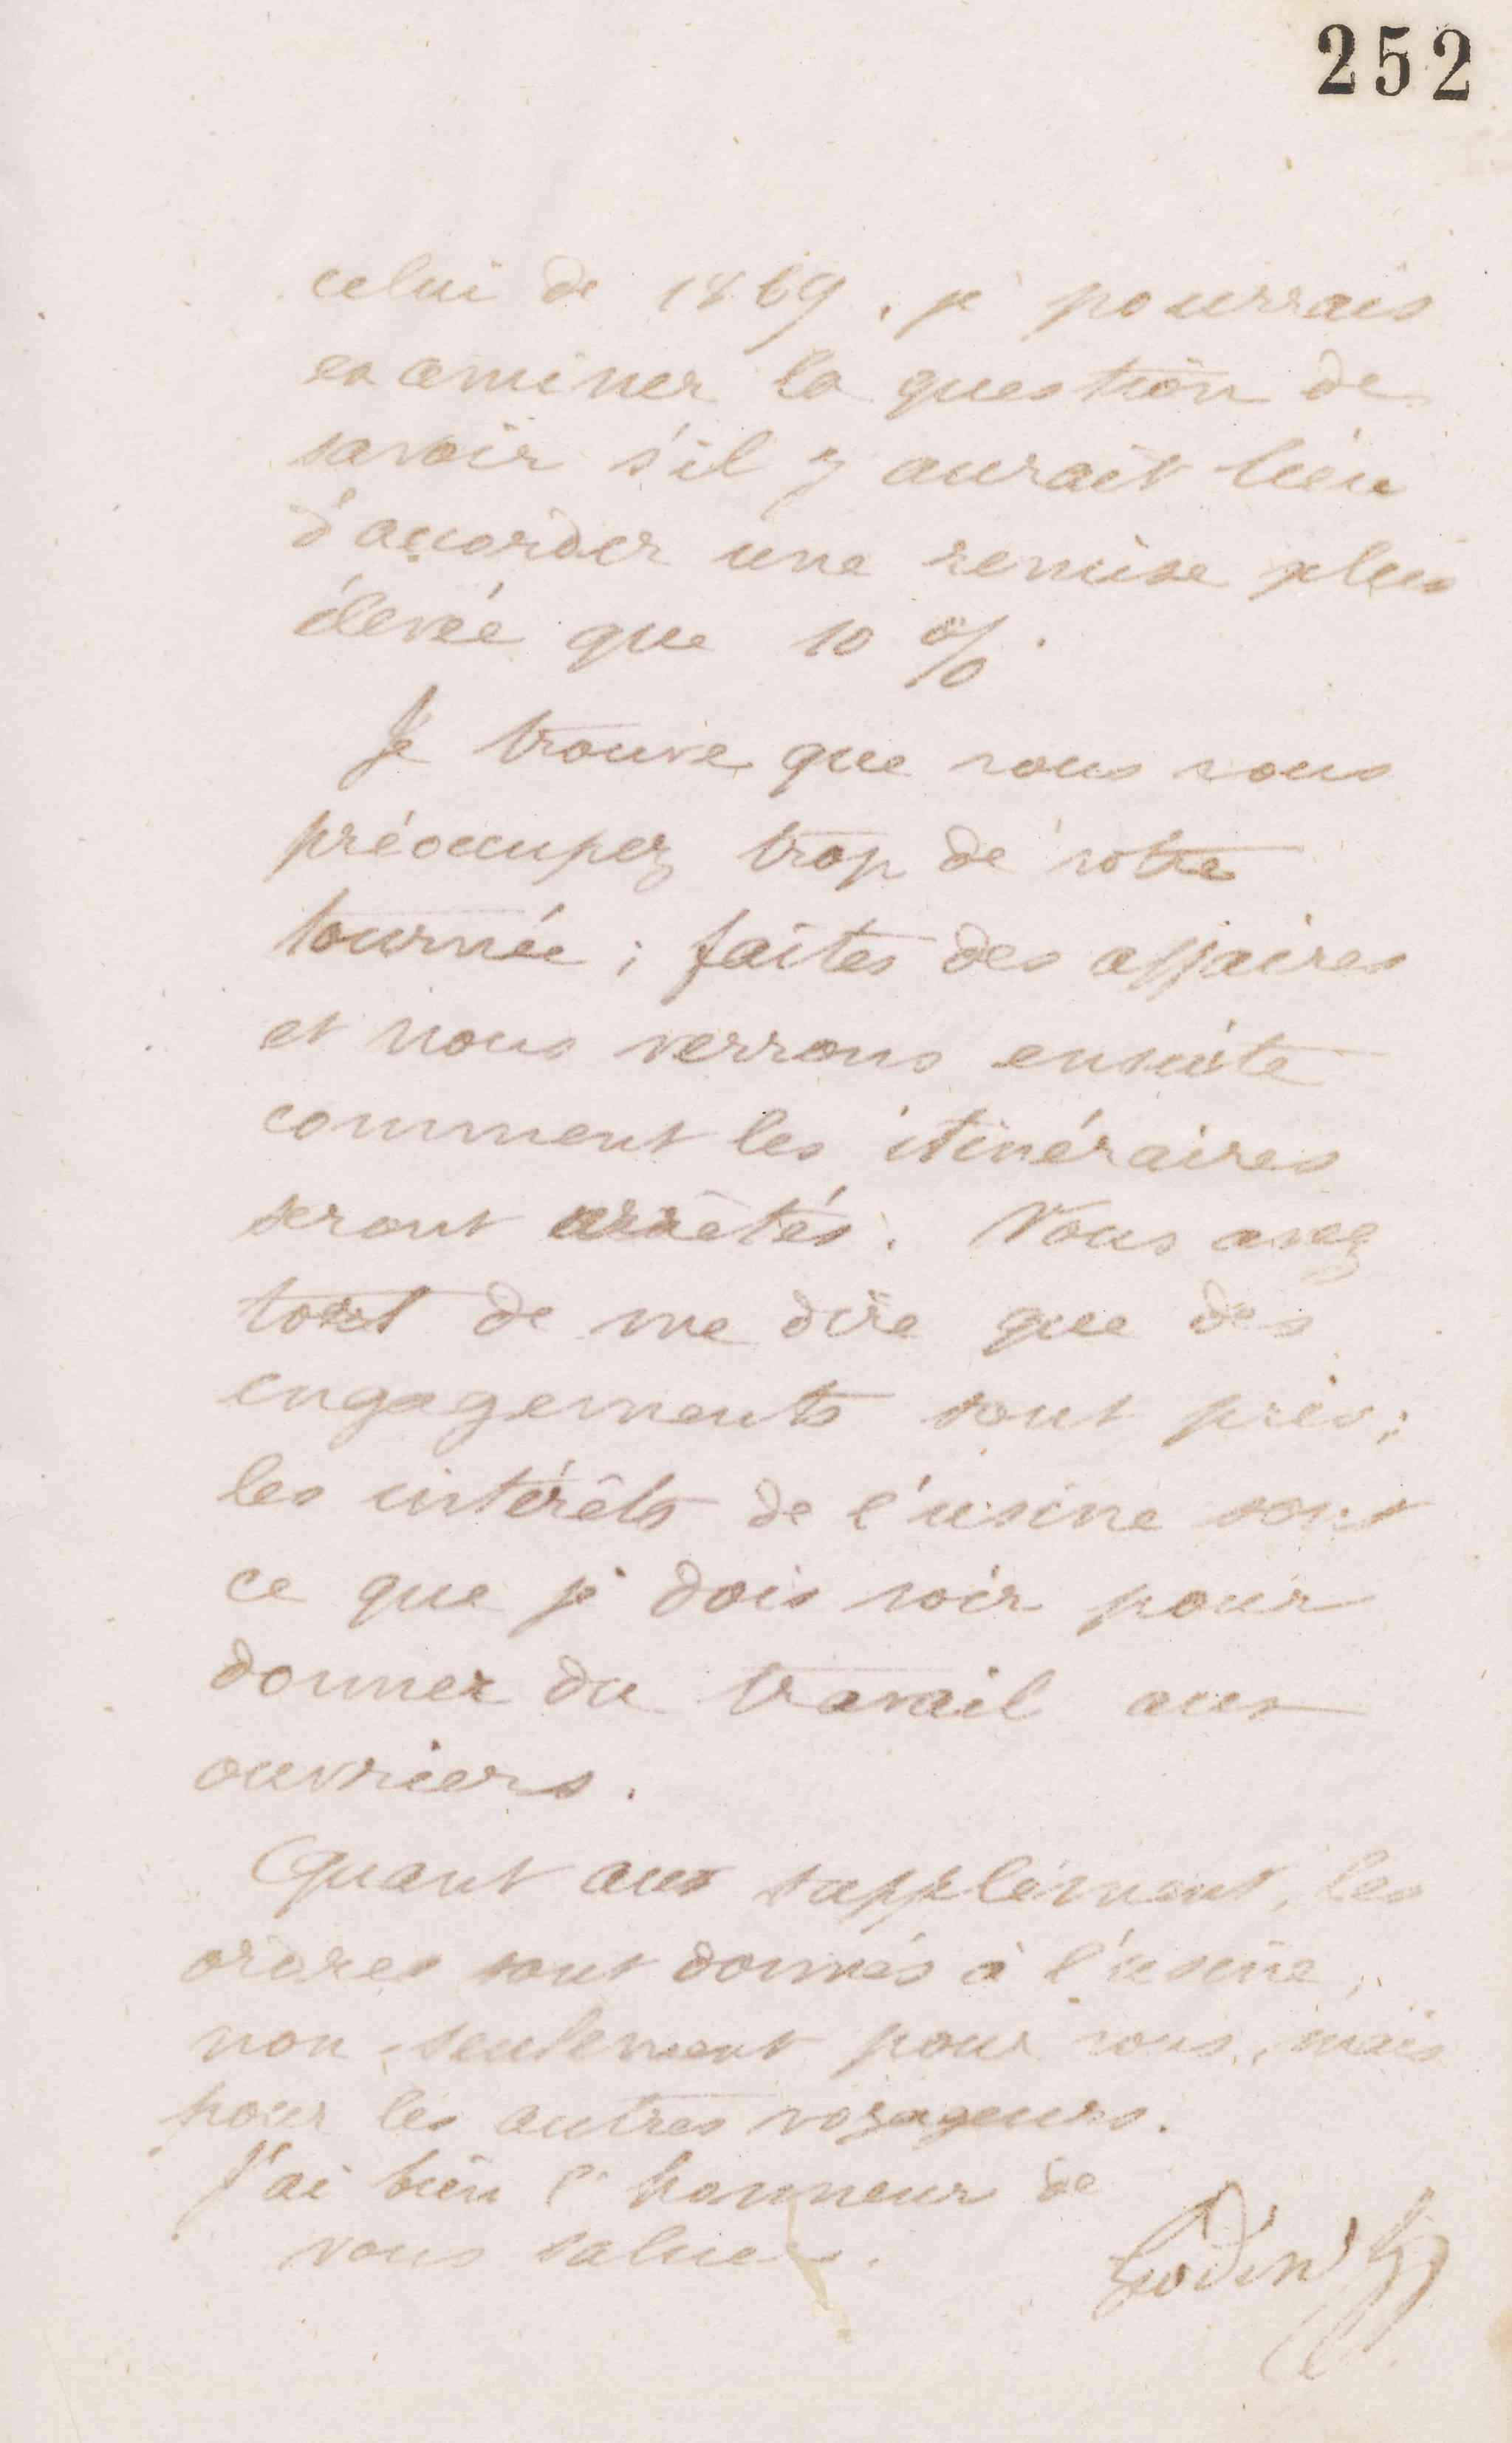 252
celui de 1869, je pourrais
examiner la question de
savoir s'il y aurait lieu
d'accorder une remise plus
élevée que 10 %.
Je trouve que vous vous
préoccupez trop de votre
tournée ; faites des affaires
et nous verrons ensuite
comment les itinéraires
seront arrêtés. Vous avez
tort de me dire que des
engagements sont pris ;
les intérêts de l'usine sont
ce que je dois voir pour
donner du travail aux
ouvriers.
Quant aux supplément, les
ordres sont donnés à l'usine,
non seulement pour vous, mais
pour les autres voyageurs.
J'ai bien l'honneur de
vous saluer.
Godin